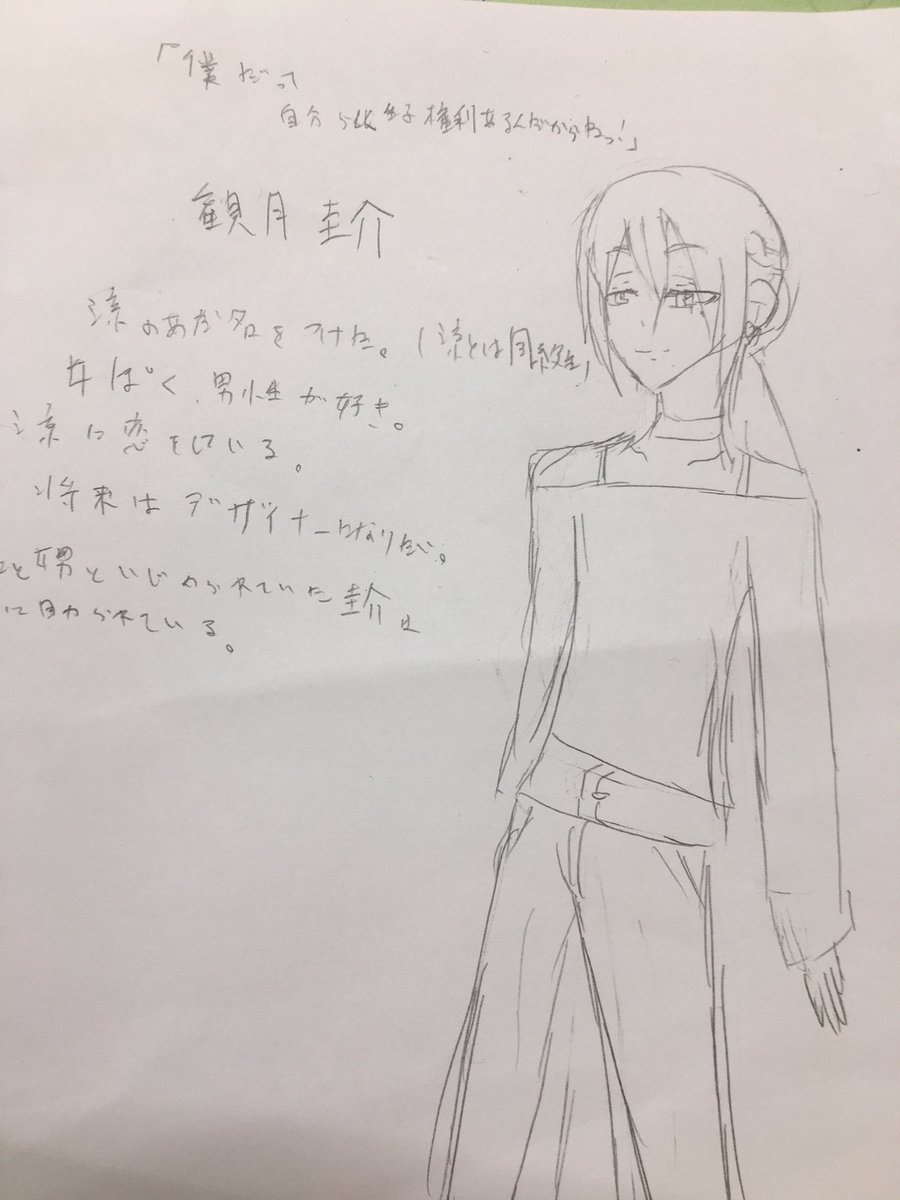 「僕だって
自分らしく生きる権利あるんだからねっ!」
観月 圭介
涼のあだ名をつけた。(涼とは同級生)
女っぽく、男性が好き。
涼に恋をしている。
将来はデザイナーになりたい。
と女男といじめられていた圭介は
に助けられている。